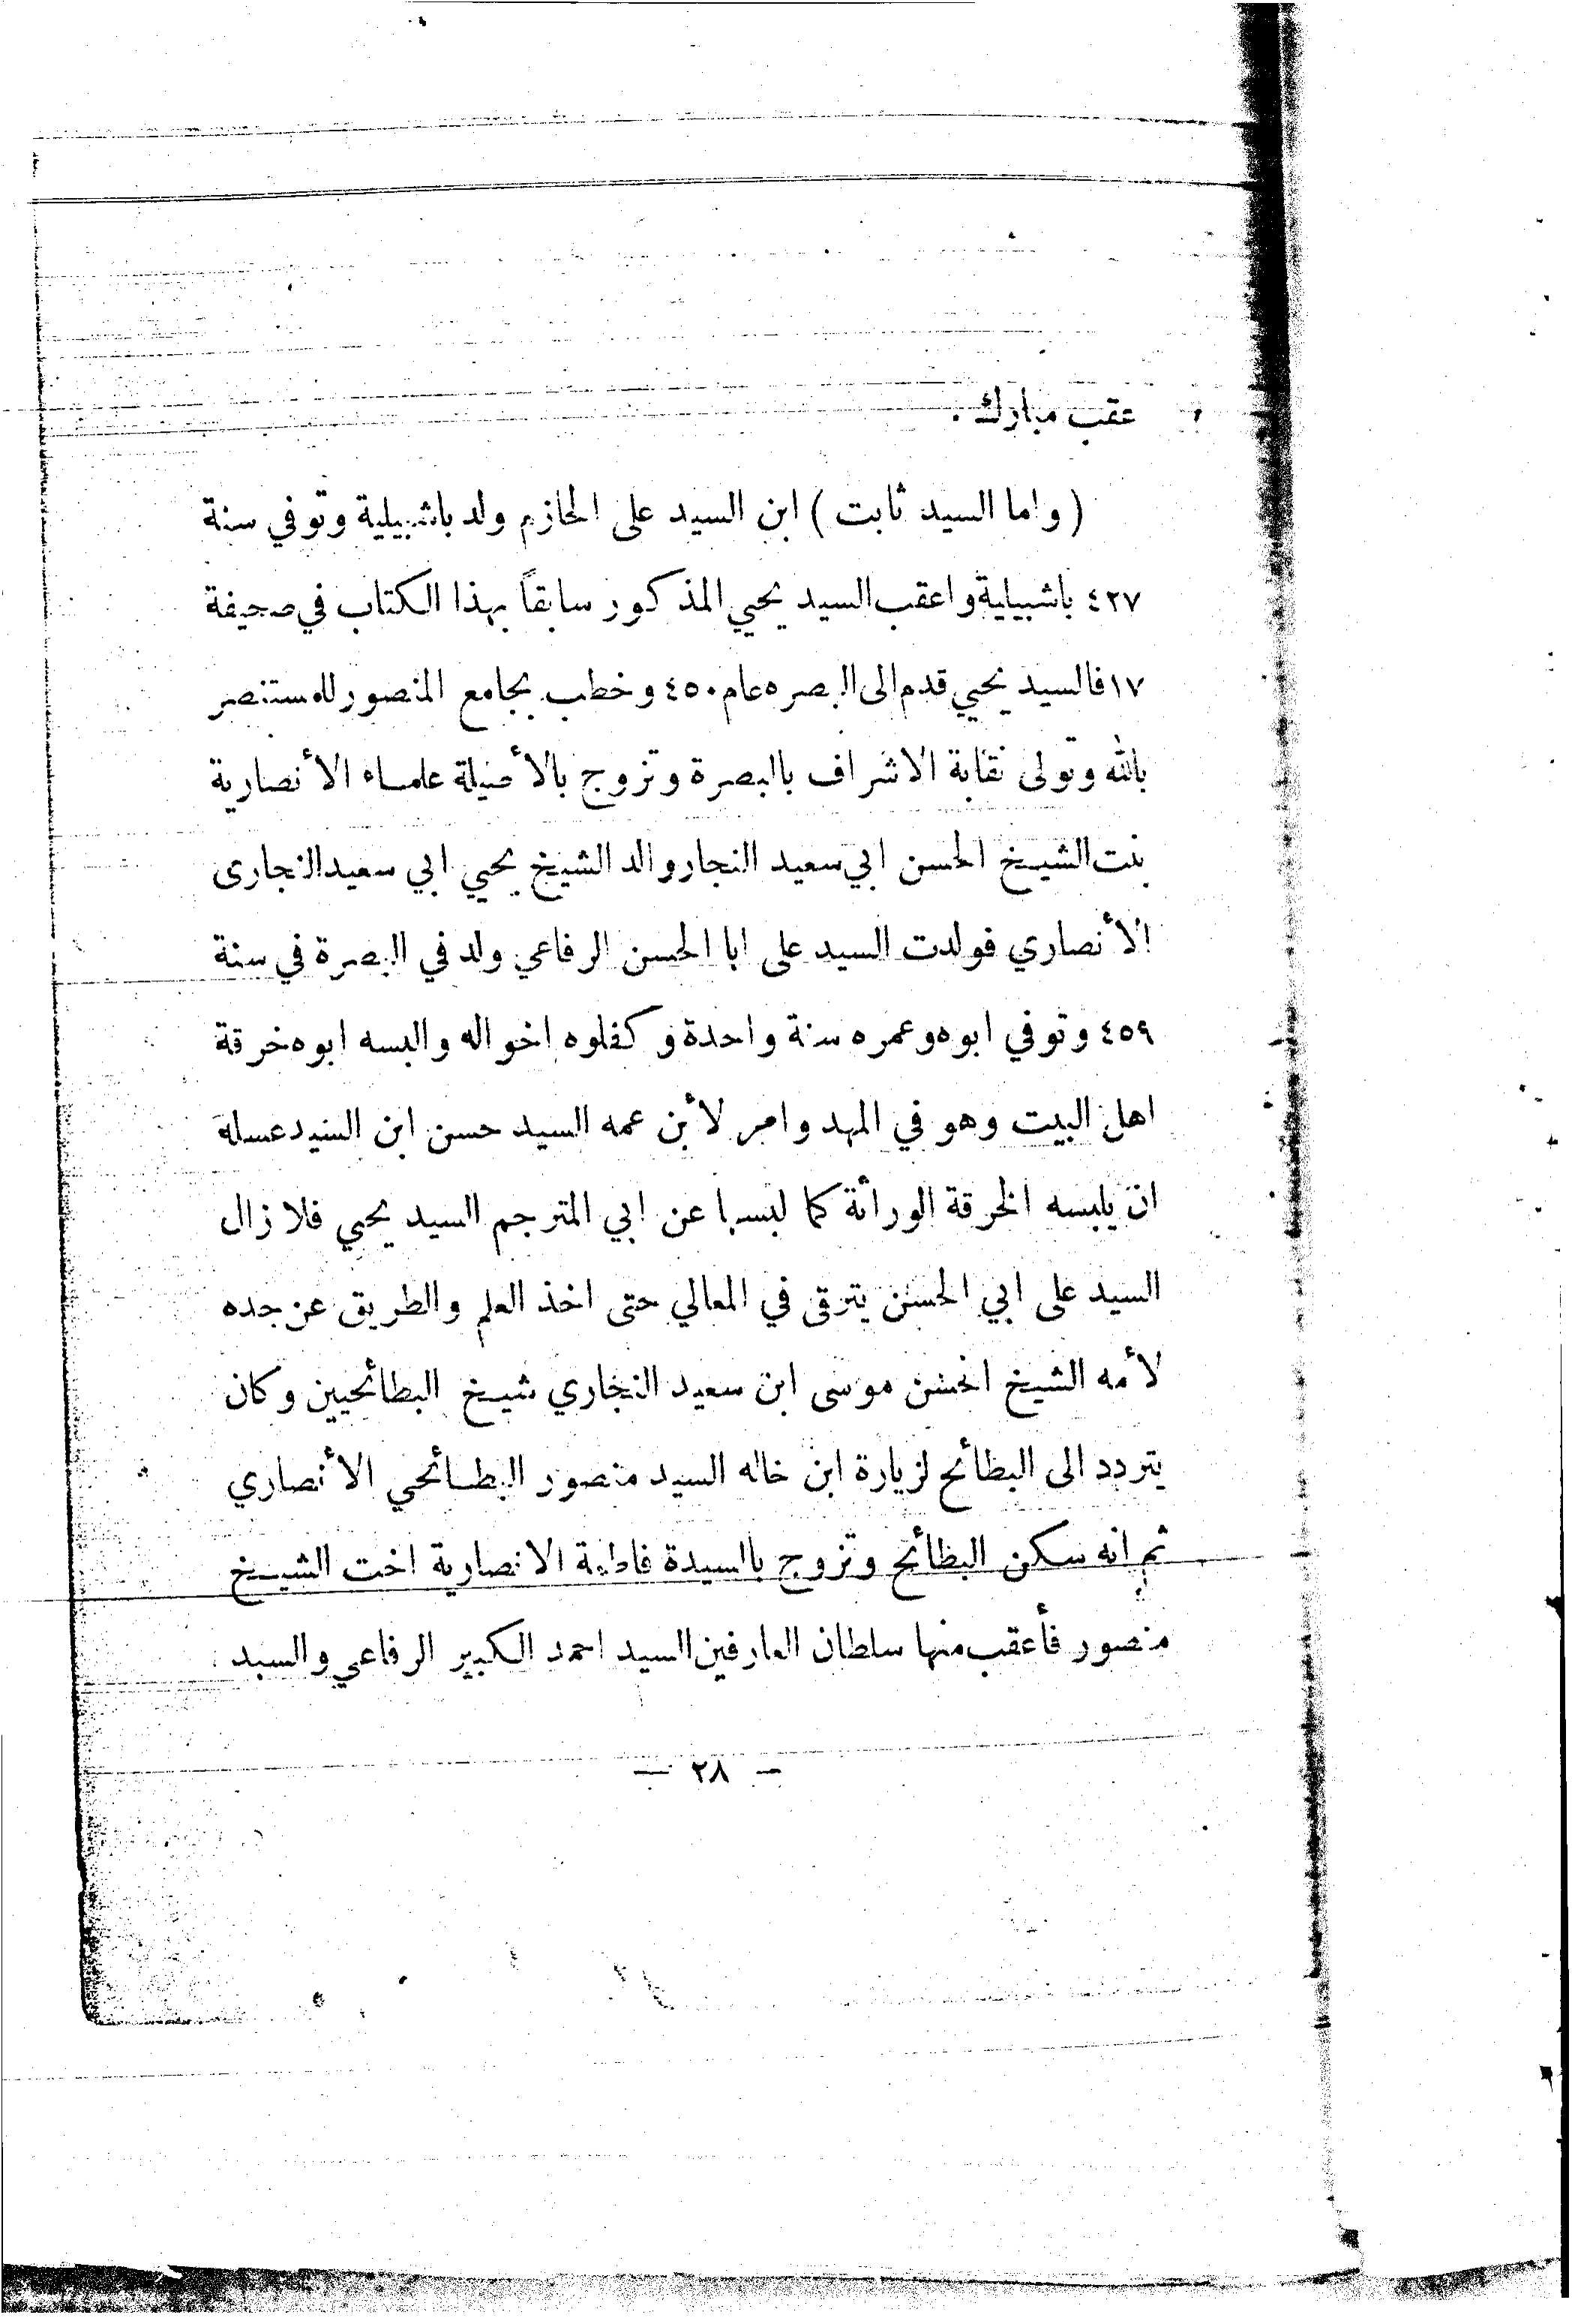 عقب مبارك .
( واما السيد ثابت ) ابن السيد على الحازم ولد باشبيلية وتوفي سنة
٤٢٧ باشبيلية واعقب السيد يحيي المذكور سابقاً بهذا الكتاب في صحيفة
١٧ فالسيد يحيي قدم الى البصره عام ٤٥٠ وخطب بجامع المنصور للمستنصر
بالله وتولى نقابة الاشراف بالبصرة وتزوج بالأصيلة علماء الأنصارية
بنت الشيخ الحسن ابي سعيد النجار والد الشيخ يحيي ابي سعيد النجارى
الأنصاري فولدت السيد على ابا الحسن الرفاعي ولد في البصرة في سنة
٤٥٩ وتوفي ابوه وعمره سنة واحدة وكفلوه اخواله والبسه ابوه خرقة
اهل البيت وهو في المهد وامر لأبن عمه السيد حسن ابن السيد عسله
ان يلبسه الخرقة الوراثة كما لبسها عن ابي المترجم السيد يحيي فلا زال
السيد على ابي الحسن يترقى في المعالي حتى اخذ العلم والطريق عن جده
لأمه الشيخ الحسن موسى ابن سعيد النجاري شيخ البطائحيين وكان
يتردد الى البطائح لزيارة ابن خاله السيد منصور البطائحي الأنصاري
ثم انه سكن البطائح وتزوج بالسيدة فاطمة الانصارية اخت الشيخ
منصور فأعقب منها سلطان العارفين السيد احمد الكبير الرفاعي والسيد
— ٢٨ —